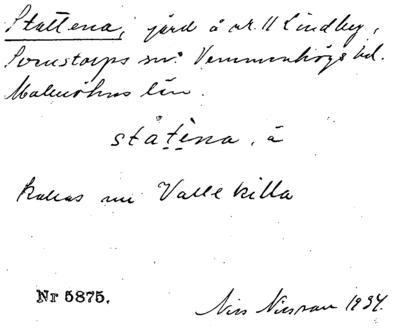 Stattena, jord å nr. 11 Lindby,
Svenstorps sn. Vemmenhögs hd.
Malmöhus län.
ståtèna, å
kallas nu Vallekilla
Nr 5875.
Nils Nilsson 1934.